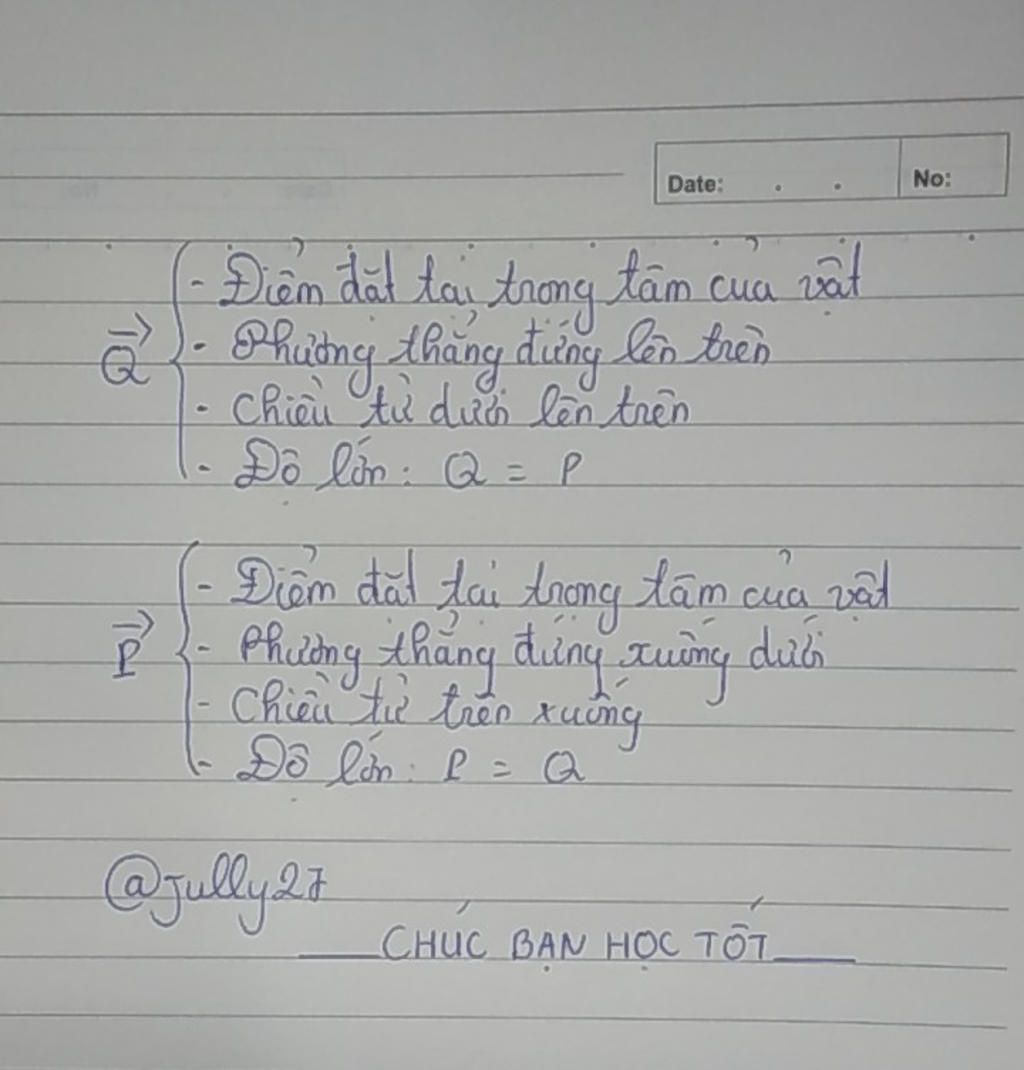 Date: . . No:
Q { - Điểm đặt tại trọng tâm của vật
- Phương thẳng đứng lên trên
- Chiều từ dưới lên trên
- Độ lớn: Q = P
P { - Điểm đặt tại trọng tâm của vật
- Phương thẳng đứng xuống dưới
- Chiều từ trên xuống
- Độ lớn: P = Q
@Jully27
CHÚC BẠN HỌC TỐT